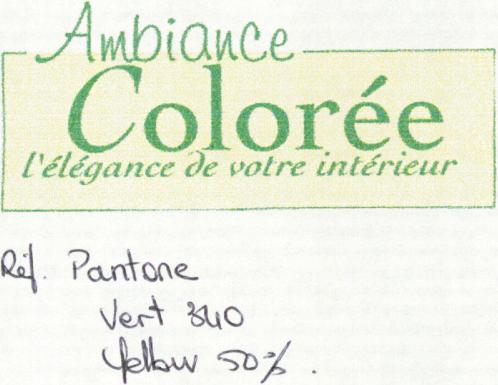 Ambiance
Colorée
l'élégance de votre intérieur
Réf. Pantone
Vert 340
Yellow 50%.